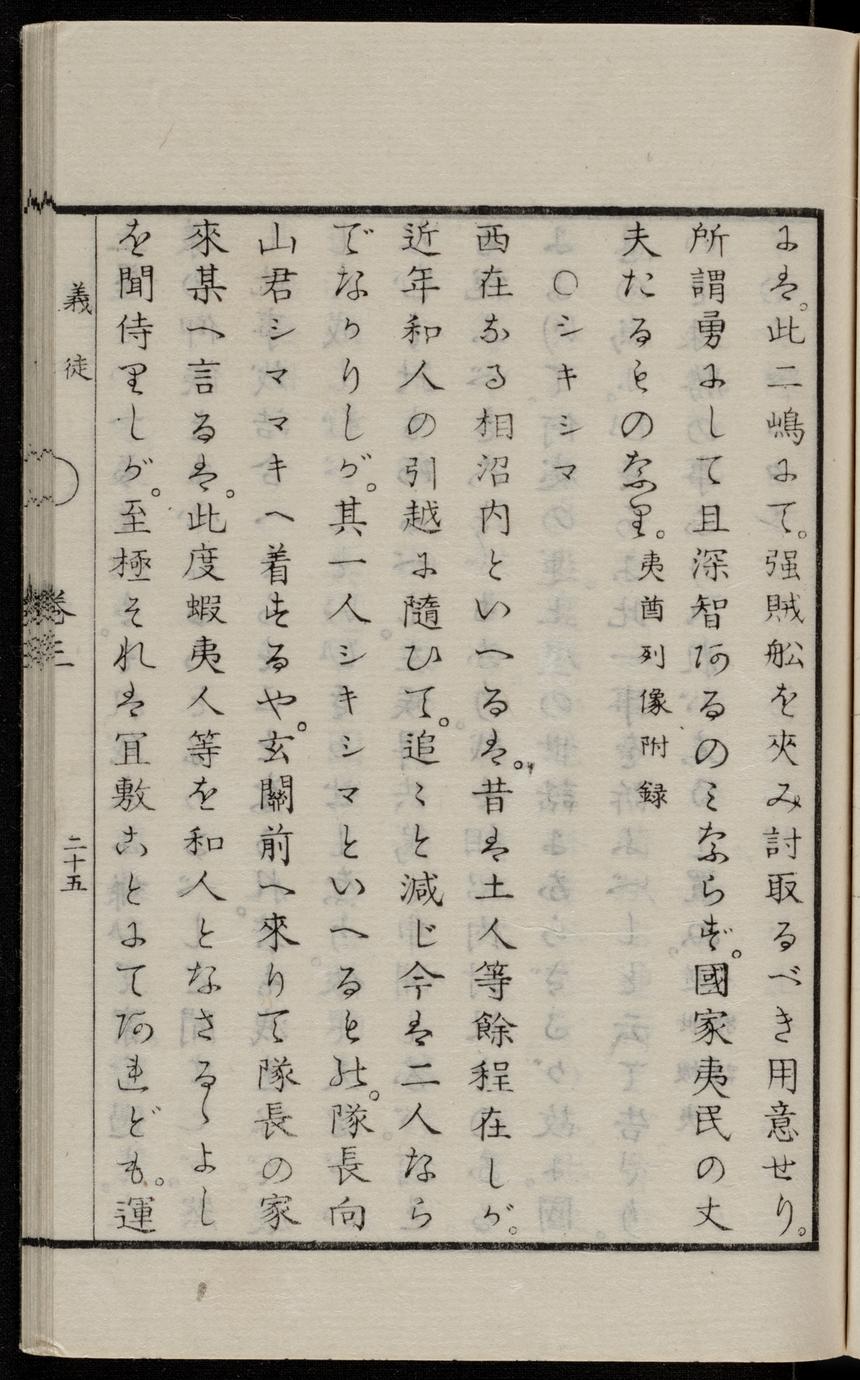 には。此二嶋にて。强賊舩を夾み討取るべき用意せり。
所謂勇にして且深智あるのミならず。國家夷民の丈
夫たるものなり。夷酋列像附録
〇シキシマ
西在なる相沼内といへるは。昔は土人等餘程在しが。
近年和人の引越に隨ひて。追〻と減じ今は二人なら
でなかりしが。其一人シキシマといへるもの。隊長向
山君シママキへ着するや。玄關前へ來りて隊長の家
來某へ言るは。此度蝦夷人等を和人となさるゝよし
を聞侍りしが。至極それは冝敷ことにてあれども。運
義徒 卷三 二十五